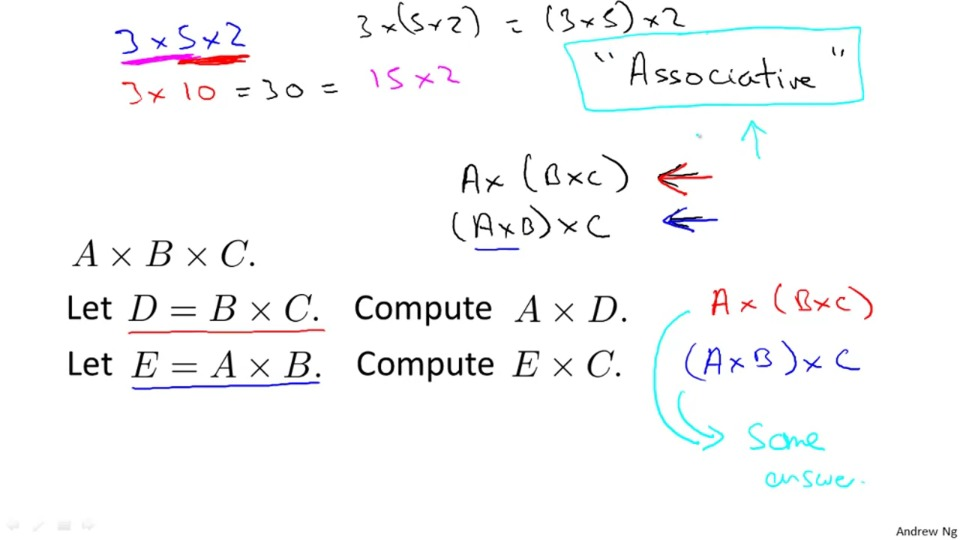 3 × 5 × 2
3 × (5 × 2) = (3 × 5) × 2
3 × 10 = 30 = 15 × 2
"Associative"
A × (B × C)
(A × B) × C
A × B × C.
Let D = B × C. Compute A × D.
A × (B × C)
Let E = A × B. Compute E × C.
(A × B) × C
Same
answer.
Andrew Ng